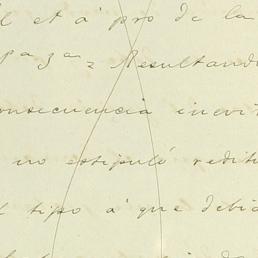 l et a' pro de la
paga = Resultando
consecuencia inevit
no estipuló redit
l tipo a' que debia